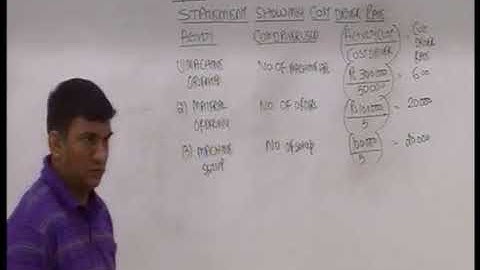 STATEMENT SHOWING COST DRIVER RATE
ACTIVITY COST DRIVER USED (ACTIVITY COST / COST DRIVER) = COST DRIVER RATE
1) MACHINE NO OF MACHINE 300000 / 50000 = 6.00
2) MATERIAL ORDERING NO OF ORDER 100000 / 5 = 20000
3) MACHINE SETUP NO OF SETUP 100000 / 5 = 20000